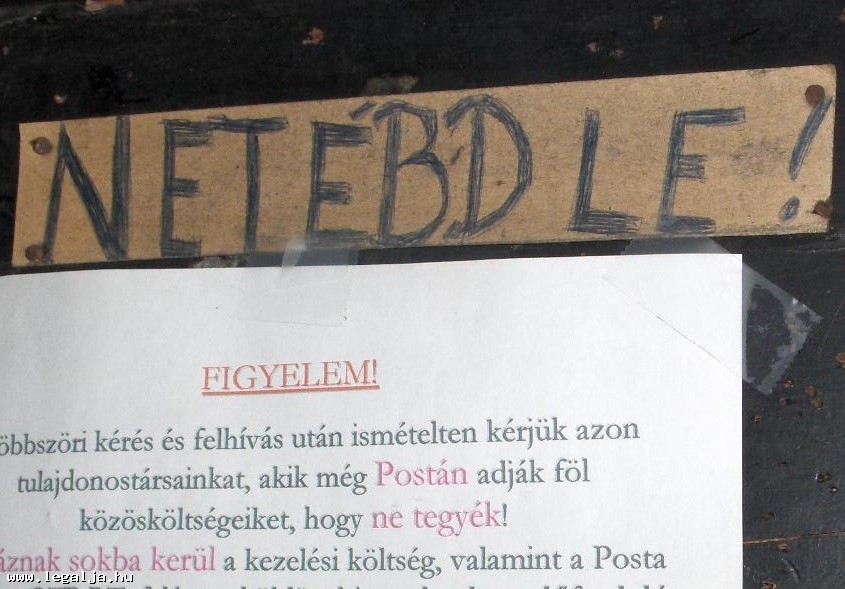 NE TÉBD LE!
FIGYELEM!
öbbszöri kérés és felhívás után ismételten kérjük azon
tulajdonostársainkat, akik még Postán adják föl
közösköltségeiket, hogy ne tegyék!
áznak sokba kerül a kezelési költség, valamint a Posta
www.legalja.hu